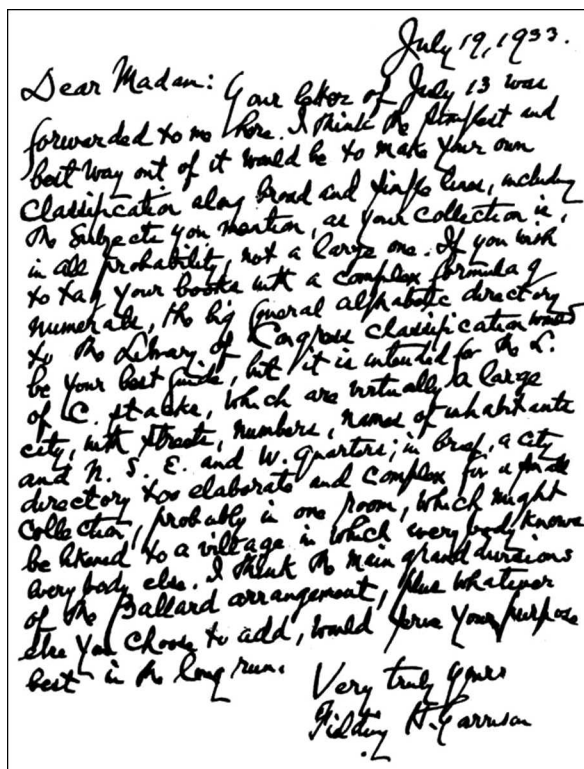 July 19, 1933.
Dear Madam: Your letter of July 13 was
forwarded to me here. I think the simplest and
best way out of it would be to make your own
classification along broad and simple lines, including
the subjects you mention, as your collection is,
in all probability, not a large one. If you wish
to tag your books with a complex formula of
numerals, the big general alphabetic directory
to the Library of Congress classification would
be your best guide, but it is intended for the L.
of C. stacks, which are virtually a large
city, with streets, numbers, names of inhabitants
and N. S. E. and W. quarters; in brief, a city
directory too elaborate and complex for a small
collection, probably in one room, which might
be likened to a village in which everybody knows
everybody else. I think the main grand divisions
of the Ballard arrangement, plus whatever
else you choose to add, would serve your purpose
best in the long run.
Very truly yours
Fielding H. Garrison